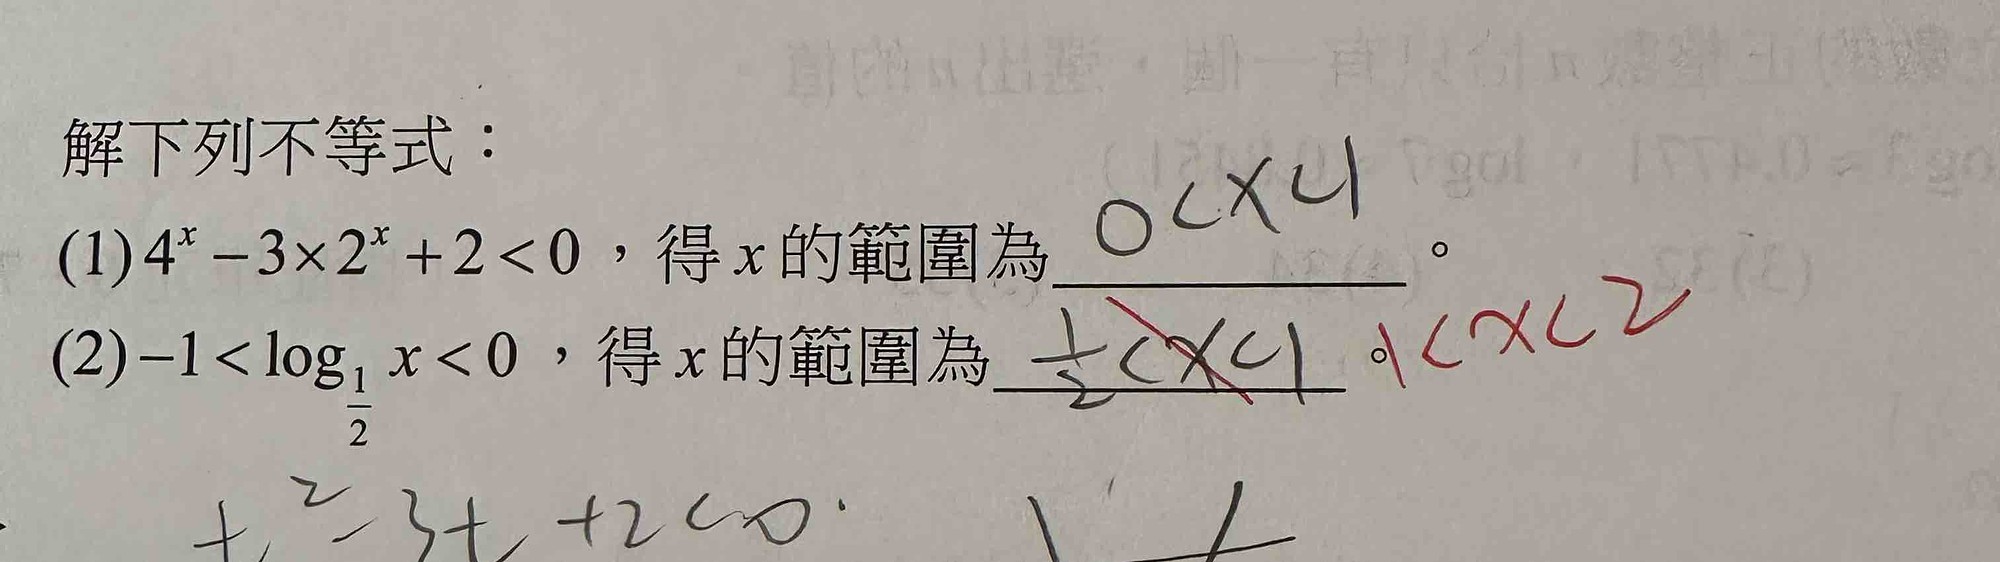 解下列不等式：
(1) 4^x − 3×2^x + 2 < 0，得 x 的範圍為 0<x<1。
(2) −1 < log_{1/2} x < 0，得 x 的範圍為 1/2<x<1。1<x<2
t^2 - 3t + 2 < 0